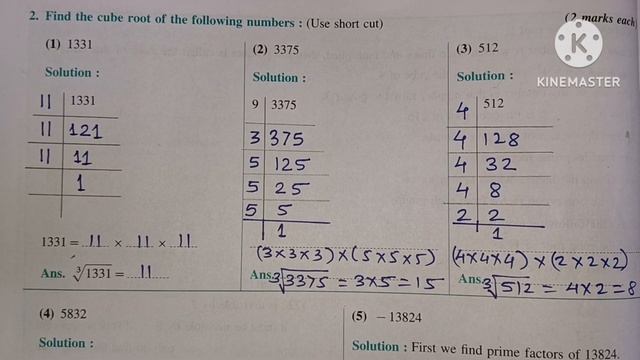 2. Find the cube root of the following numbers : (Use short cut)
(2 marks each)
KINEMASTER
(1) 1331
Solution :
11 1331
11 121
11 11
1
1331 = 11 × 11 × 11
Ans. ∛1331 = 11
(2) 3375
Solution :
9 3375
3 375
5 125
5 25
5 5
1
(3×3×3)×(5×5×5)
Ans. ∛3375 = 3×5=15
(3) 512
Solution :
4 512
4 128
4 32
4 8
2 2
1
(4×4×4)×(2×2×2)
Ans. ∛512 = 4×2=8
(4) 5832
Solution :
(5) −13824
Solution : First we find prime factors of 13824.